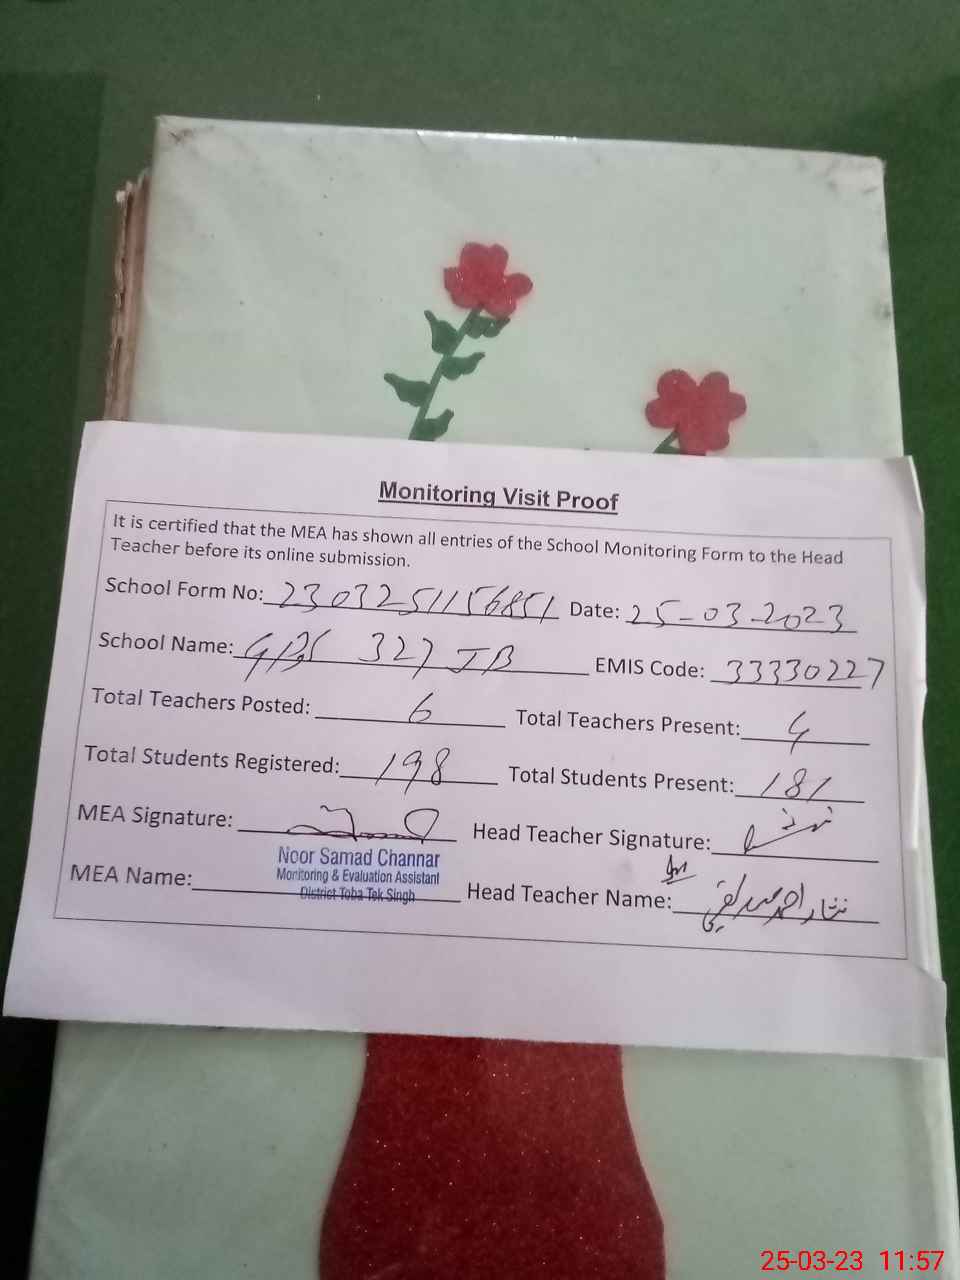 Monitoring Visit Proof
It is certified that the MEA has shown all entries of the School Monitoring Form to the Head
Teacher before its online submission.
School Form No: 2303251156851 Date: 25-03-2023
School Name: GPS 327 JB EMIS Code: 33330227
Total Teachers Posted: 6 Total Teachers Present: 4
Total Students Registered: 198 Total Students Present: 181
MEA Signature: Head Teacher Signature:
Noor Samad Channar
Monitoring & Evaluation Assistant
District Toba Tek Singh
MEA Name: Head Teacher Name: نثار احمد
25-03-23 11:57